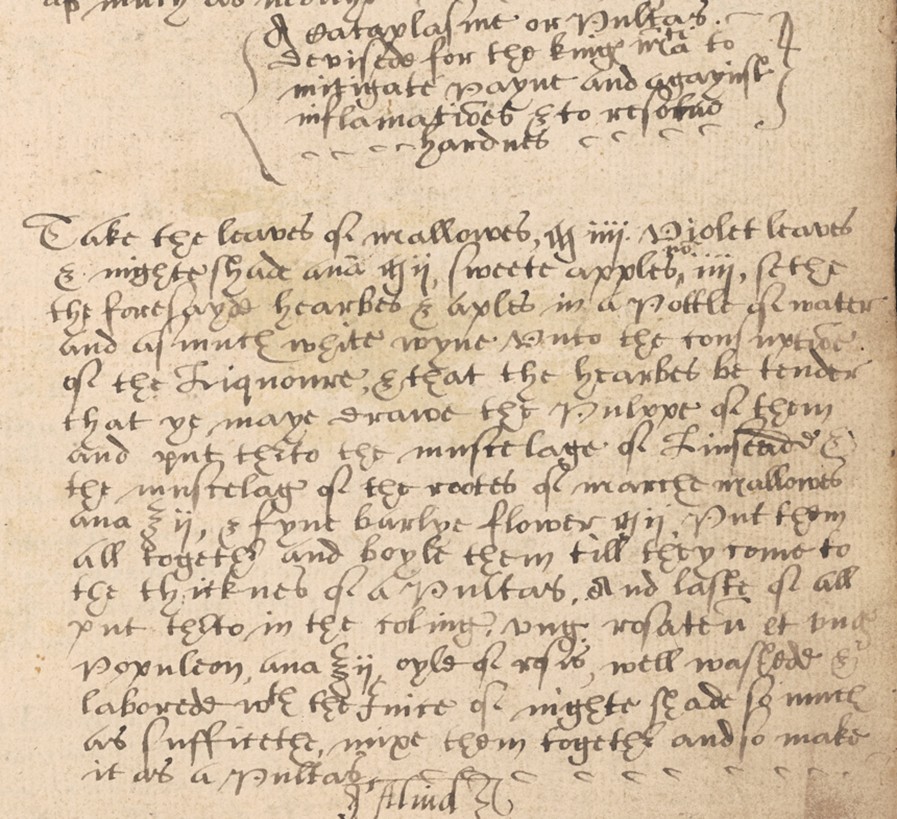 A Cataplasme or Pultas
devisede for the kings ma^ti to
mitigate Payne and agaynst
inflamatiōes & to resolue
hardnes
Take the leaves of mallowes, ɱ iiij. Violet leaves
& nighte shade ana ɱ ij, sweete apples, no iiij, sethe
the foresayde hearbes & aples in a Pottle of water
and as much white wyne Vnto the consūptiōe
of the Liquoure, & that the hearbes be tender
that ye maye drawe the Pulppe of them
and put therto the muscelage of Linseade &
the muscelag of the rootes of marche mallowes
ana ℥ ij, & fyne barlye flower ɱ ij Put them
all togeth^er and boyle them till they come to
the thicknes of a Pultas, And laste of all
put therto in the coling, vng. rosatū et vng
Populeon, ana ℥ ij, oyle of roses, well washede &
laborede w^th the Juice of nighte shade so much
as sufficethe, mixe them togeth^er and so make
it as a Pultas
Aliud